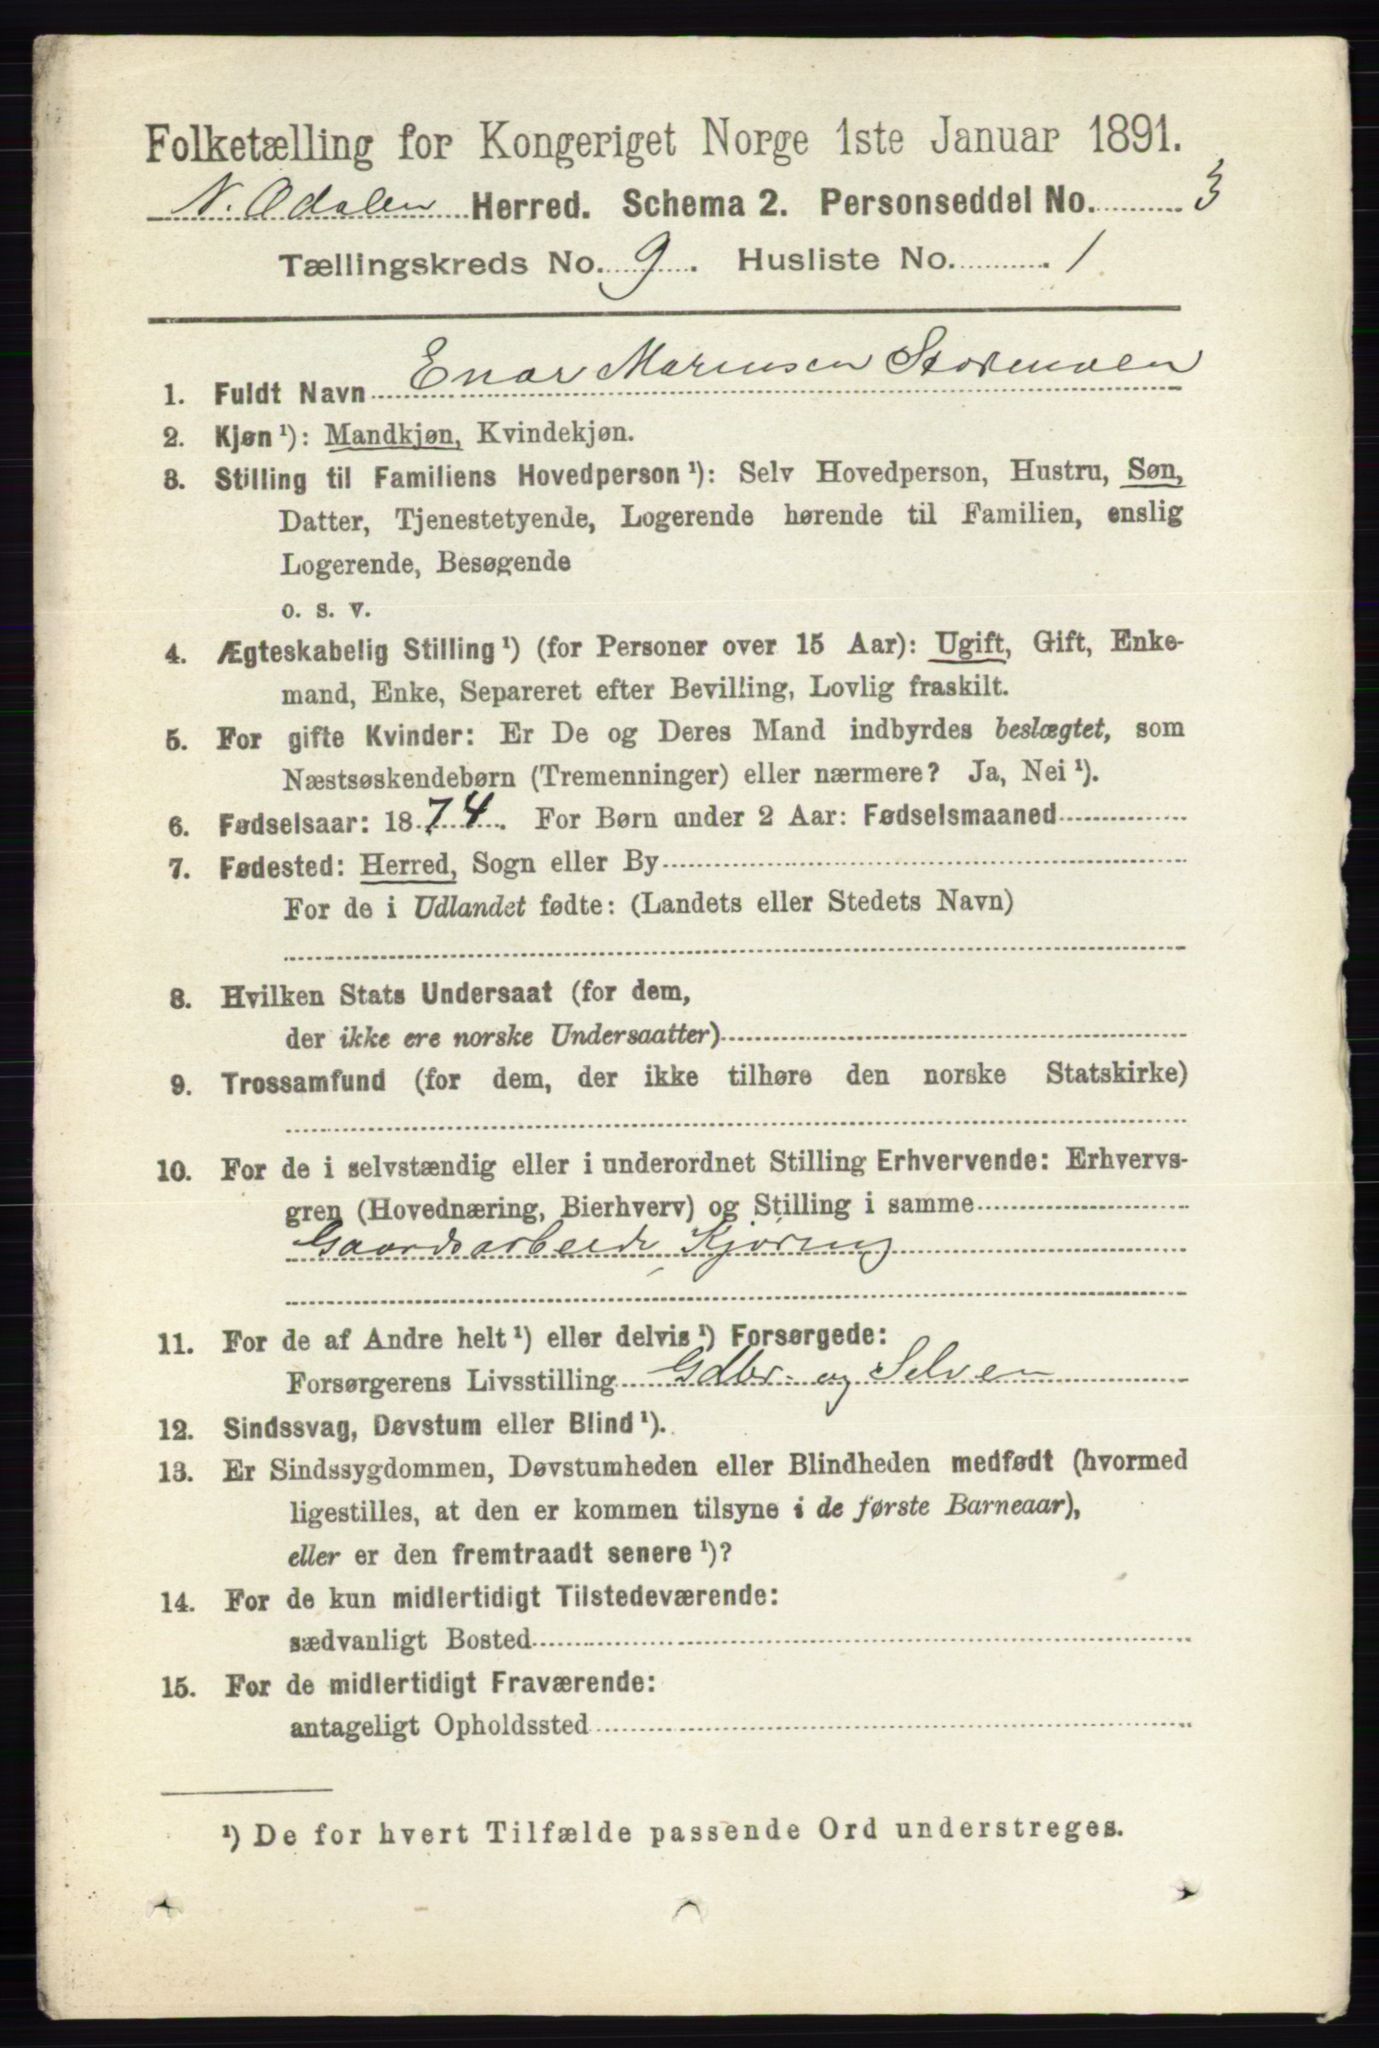 Folketælling for Kongeriget Norge 1ste Januar 1891.
N. Odalen Herred. Schema 2. Personseddel No. 3
Tællingskreds No. 9. Husliste No. 1
1. Fuldt Navn Enar Marensen Storemoen
2. Kjøn ¹): Mandkjøn, Kvindekjøn.
3. Stilling til Familiens Hovedperson ¹): Selv Hovedperson, Hustru, Søn,
Datter, Tjenestetyende, Logerende hørende til Familien, enslig
Logerende, Besøgende
o. s. v.
4. Ægteskabelig Stilling ¹) (for Personer over 15 Aar): Ugift, Gift, Enke-
mand, Enke, Separeret efter Bevilling, Lovlig fraskilt.
5. For gifte Kvinder: Er De og Deres Mand indbyrdes beslægtet, som
Næstsøskendebørn (Tremenninger) eller nærmere? Ja, Nei ¹).
6. Fødselsaar: 1874. For Børn under 2 Aar: Fødselsmaaned
7. Fødested: Herred, Sogn eller By
For de i Udlandet fødte: (Landets eller Stedets Navn)
8. Hvilken Stats Undersaat (for dem,
der ikke ere norske Undersaatter)
9. Trossamfund (for dem, der ikke tilhøre den norske Statskirke)
10. For de i selvstændig eller i underordnet Stilling Erhvervende: Erhvervs-
gren (Hovednæring, Bierhverv) og Stilling i samme
Gaardsarbeide, Kjøring
11. For de af Andre helt ¹) eller delvis ¹) Forsørgede:
Forsørgerens Livsstilling Gdbr. og Selveier
12. Sindssvag, Døvstum eller Blind ¹).
13. Er Sindssygdommen, Døvstumheden eller Blindheden medfødt (hvormed
ligestilles, at den er kommen tilsyne i de første Barneaar),
eller er den fremtraadt senere ¹)?
14. For de kun midlertidigt Tilstedeværende:
sædvanligt Bosted
15. For de midlertidigt Fraværende:
antageligt Opholdssted
¹) De for hvert Tilfælde passende Ord understreges.